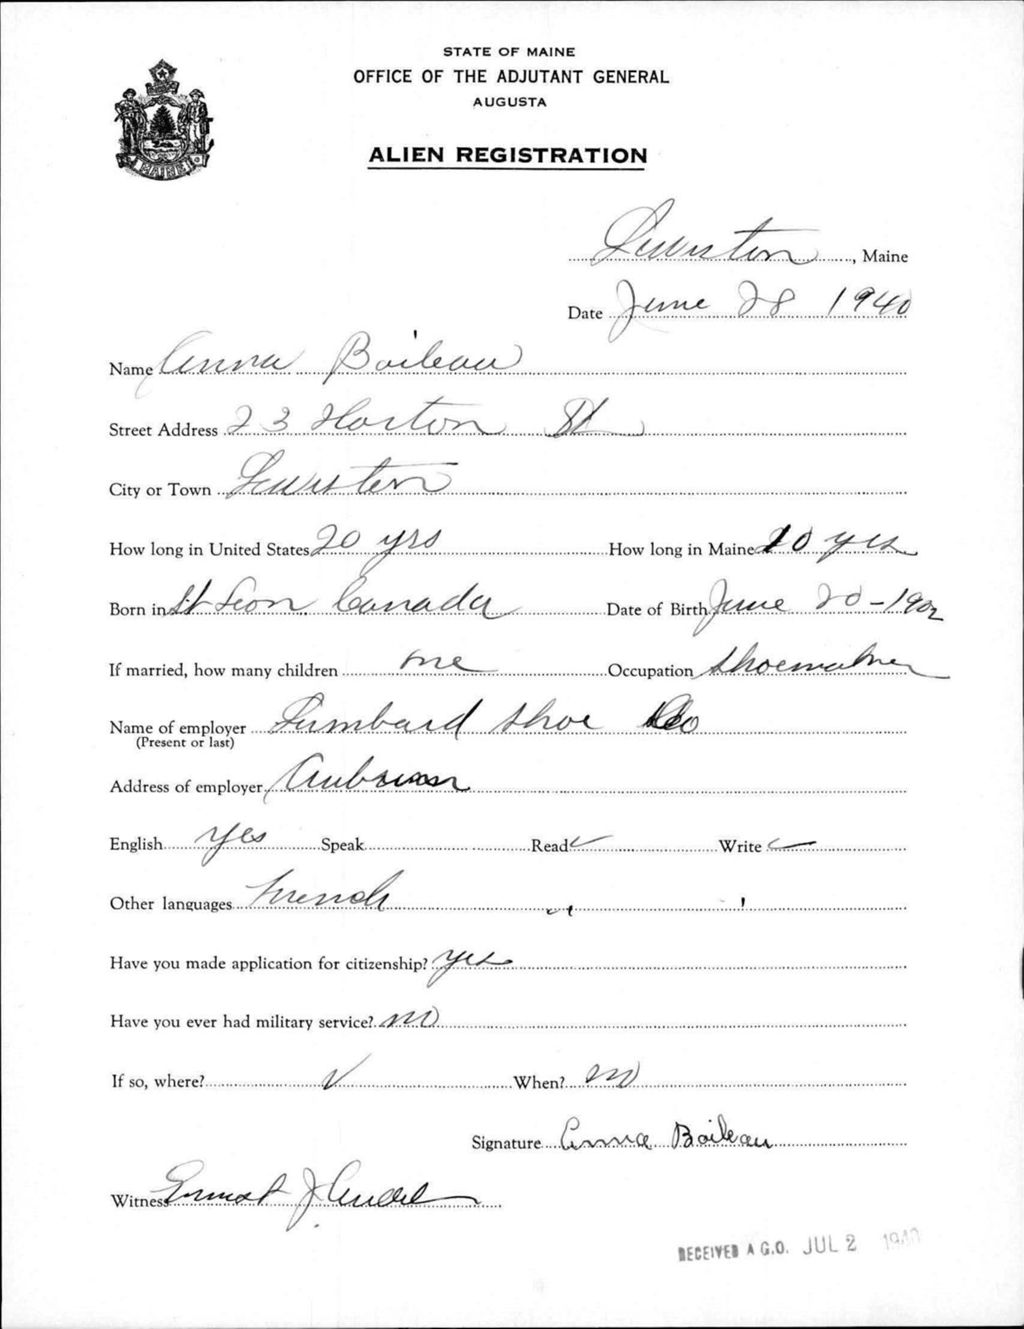 STATE OF MAINE
OFFICE OF THE ADJUTANT GENERAL
AUGUSTA
ALIEN REGISTRATION
MAINE
Lewiston, Maine
Date June 28 1940
Name Anna Boileau
Street Address 23 Horton St
City or Town Lewiston
How long in United States 20 yrs How long in Maine 20 yrs
Born in St Leon Canada Date of Birth June 20-1902
If married, how many children one Occupation Shoemaker
Name of employer Lumbard Shoe Co
(Present or last)
Address of employer Auburn
English yes Speak Read ✓ Write ✓
Other languages French
Have you made application for citizenship? yes
Have you ever had military service? no
If so, where? ✓ When? no
Signature Anna Boileau
Witness Ernest J
RECEIVED A G.O. JUL 2 1940